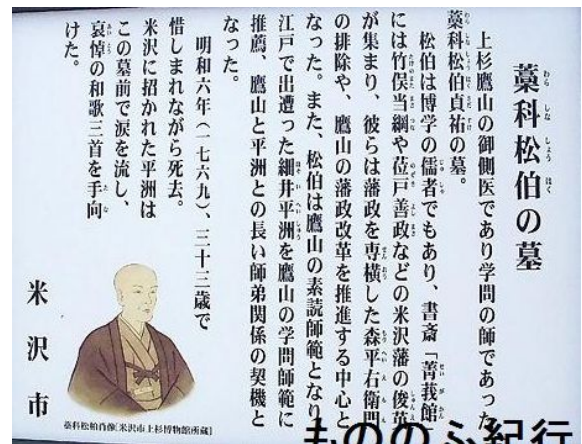 藁科松伯の墓
上杉鷹山の御側医であり学問の師であった
藁科松伯貞祐の墓。
松伯は博学の儒者でもあり、書斎「菁莪館」
には竹俣当綱や莅戸善政などの米沢藩の俊英
が集まり、彼らは藩政を専横した森平右衛門
の排除や、鷹山の藩政改革を推進する中心と
なった。また、松伯は鷹山の素読師範となり、
江戸で出遭った細井平洲を鷹山の学問師範に
推薦、鷹山と平洲との長い師弟関係の契機と
なった。
明和六年(一七六九)、三十三歳で
惜しまれながら死去。
米沢に招かれた平洲は
この墓前で涙を流し、
哀悼の和歌三首を手向
けた。
米沢市
藁科松柏肖像[米沢市上杉博物館所蔵]
もののふ紀行